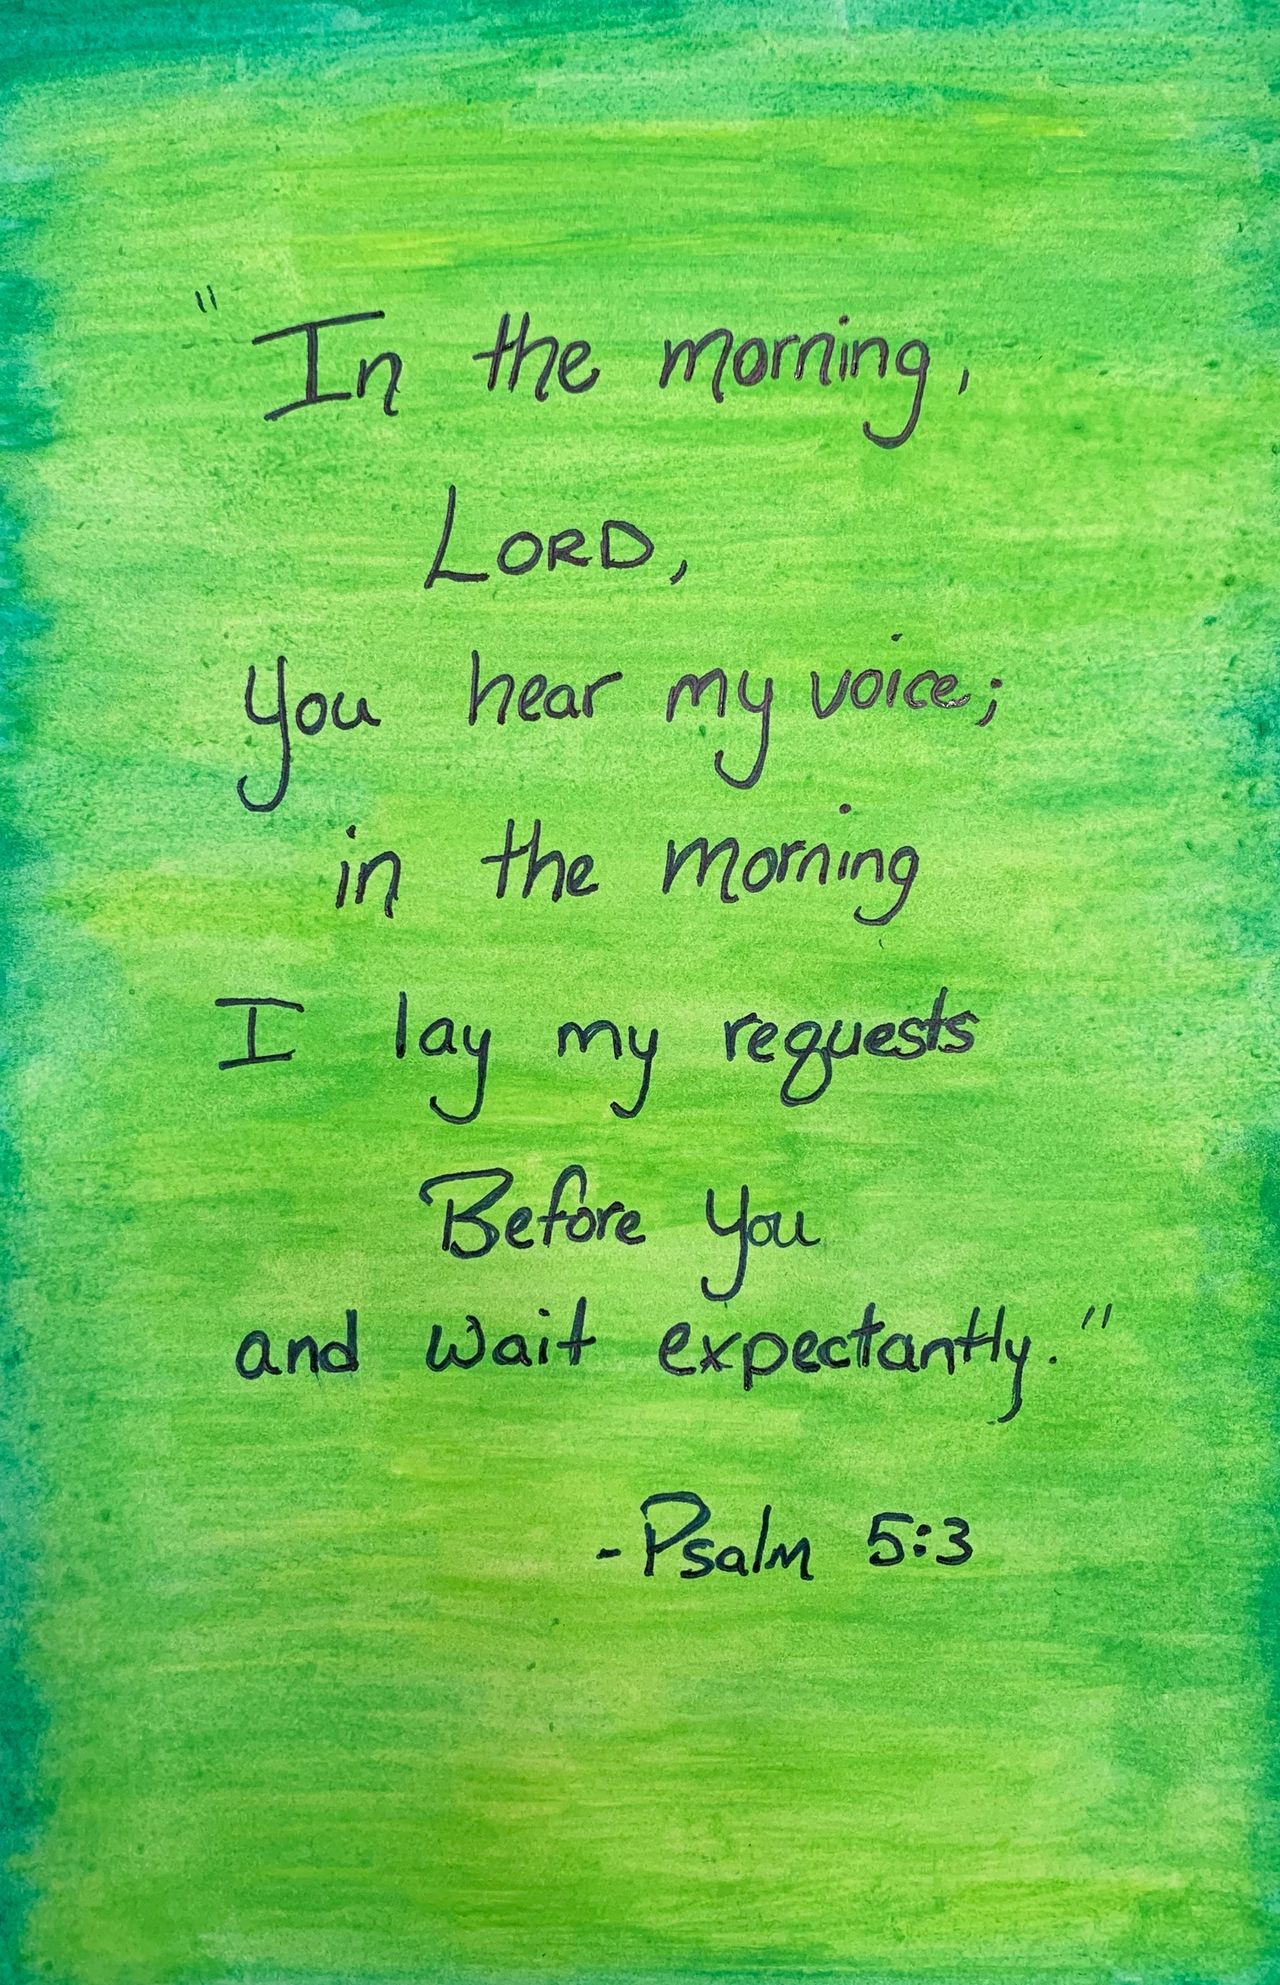 "In the morning,
LORD,
you hear my voice;
in the morning
I lay my requests
Before you
and wait expectantly."
-Psalm 5:3